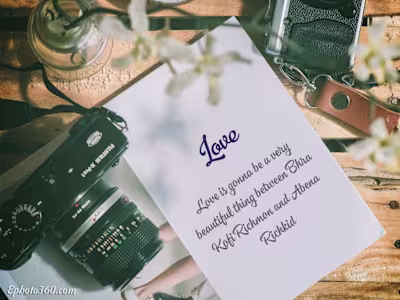 Love
Love is gonna be a very
beautiful thing between Bhra
Kofi Richmon and Abena
Richkid
FUJIFILM X-PRO1
Ephoto360.com